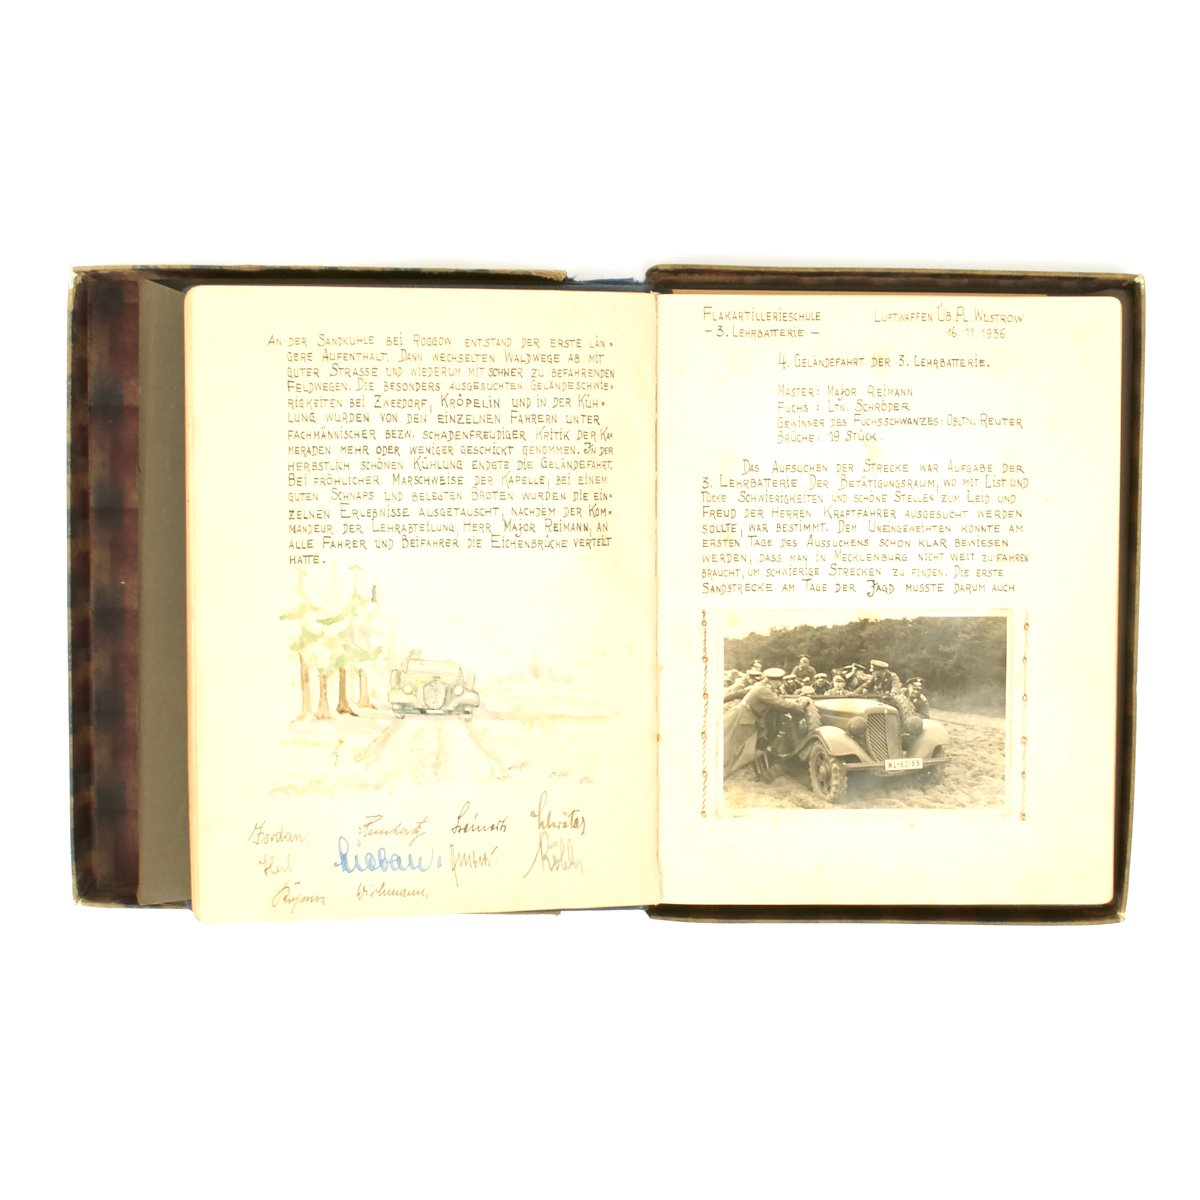 An der Sandkuhle bei Roggow entstand der erste län=
gere Aufenthalt. Dann wechselten Waldwege ab mit
guter Strasse und wiederum mit schwer zu befahrenden
Feldwegen. Die besonders ausgesuchten Geländeschwie=
rigkeiten bei Zweedorf, Kröpelin und in der Küh=
lung wurden von den einzelnen Fahrern unter
fachmännischer bezw. schadenfreudiger Kritik der Ka=
meraden mehr oder weniger geschickt genommen. In der
herbstlich schönen Kühlung endete die Geländefahrt.
Bei fröhlicher Marschweise der Kapelle, bei einem
guten Schnaps und belegten Broten wurden die ein=
zelnen Erlebnisse ausgetauscht, nachdem der Kom=
mandeur der Lehrabteilung, Herr Major Reimann, an
alle Fahrer und Beifahrer die Eichenbrüche verteilt
hatte.
Jordan
Wichmann
Flakartillerieschule Luftwaffen Üb. Pl. Wustrow
- 3. Lehrbatterie - 16.11.1936.
4. Geländefahrt der 3. Lehrbatterie.
Master: Major Reimann
Fuchs: Ltn. Schröder
Gewinner des Fuchsschwanzes: Obltn. Reuter
Brüche: 19 Stück.
Das Aufsuchen der Strecke war Aufgabe der
3. Lehrbatterie. Der Betätigungsraum, wo mit List und
Tücke Schwierigkeiten und schöne Stellen zum Leid und
Freud der Herren Kraftfahrer ausgesucht werden
sollte, war bestimmt. Dem Uneingeweihten konnte am
ersten Tage des Aussuchens schon klar bewiesen
werden, dass man in Mecklenburg nicht weit zu fahren
braucht, um schwierige Strecken zu finden. Die erste
Sandstrecke am Tage der Jagd musste darum auch